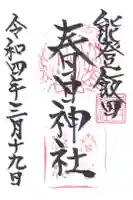 能登飯田
春日神社
令和四年三月十九日